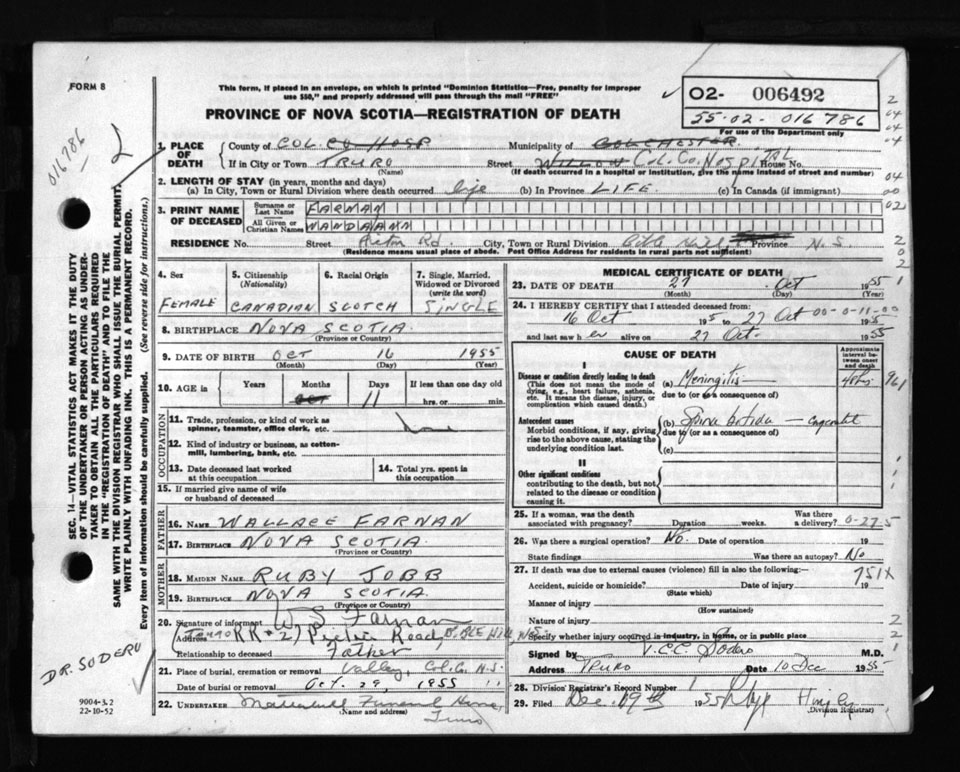 FORM 8
This form, if placed in an envelope, on which is printed "Dominion Statistics—Free, penalty for improper
use $50," and properly addressed will pass through the mail "FREE"
PROVINCE OF NOVA SCOTIA—REGISTRATION OF DEATH
O2- 006492
55-02-016786
For use of the Department only
016786
1. PLACE OF DEATH
County of COL. CO HOSP Municipality of COLCHESTER
If in City or Town TRURO Street WILLOW Col. Co. Hospital House No.
(Name) (If death occurred in a hospital or institution, give the name instead of street and number)
2. LENGTH OF STAY (in years, months and days)
(a) In City, Town or Rural Division where death occurred life (b) In Province LIFE. (c) In Canada (if immigrant)
3. PRINT NAME OF DECEASED
Surname or Last Name FARNAN
All Given or Christian Names WANDA ANN
RESIDENCE No. Street Rd. City, Town or Rural Division Province N.S.
(Residence means usual place of abode. Post Office Address for residents in rural parts not sufficient)
4. Sex 5. Citizenship (Nationality) 6. Racial Origin 7. Single, Married, Widowed or Divorced (write the word)
FEMALE CANADIAN SCOTCH SINGLE
8. BIRTHPLACE NOVA SCOTIA.
(Province or Country)
9. DATE OF BIRTH Oct 16 1955
(Month) (Day) (Year)
10. AGE in Years Months Days If less than one day old
11 hrs. or min.
OCCUPATION
11. Trade, profession, or kind of work as
spinner, teamster, office clerk, etc.
12. Kind of industry or business, as cotton-
mill, lumbering, bank, etc.
13. Date deceased last worked at this occupation 14. Total yrs. spent in this occupation
15. If married give name of wife
or husband of deceased
FATHER
16. NAME WALLACE FARNAN
17. BIRTHPLACE NOVA SCOTIA.
(Province or Country)
MOTHER
18. MAIDEN NAME RUBY JOBB
19. BIRTHPLACE NOVA SCOTIA.
(Province or Country)
20. Signature of informant W. S. Farnan
Address Truro RR #2 Road, BIBLE HILL, N.S.
Relationship to deceased Father
21. Place of burial, cremation or removal Valley, Col. Co. N.S.
Date of burial or removal Oct. 29, 1955
22. UNDERTAKER Funeral Home,
(Name and address) Truro
MEDICAL CERTIFICATE OF DEATH
23. DATE OF DEATH 27 Oct 1955
(Month) (Day) (Year)
24. I HEREBY CERTIFY that I attended deceased from:
16 Oct 195 to 27 Oct 1955
00-0-11-00
and last saw h er alive on 27 Oct 1955
CAUSE OF DEATH
Approximate interval between onset and death
I
Disease or condition directly leading to death
(This does not mean the mode of dying, e.g., heart failure, asthenia, etc. It means the disease, injury, or complication which caused death.)
(a) Meningitis
due to (or as a consequence of)
961
Antecedent causes
Morbid conditions, if any, giving rise to the above cause, stating the underlying condition last.
(b) Spina bifida — congenital
due to (or as a consequence of)
(c)
II
Other significant conditions
contributing to the death, but not related to the disease or condition causing it.
25. If a woman, was the death associated with pregnancy? Duration weeks. Was there a delivery? 0-27-5
26. Was there a surgical operation? No. Date of operation 19
State findings Was there an autopsy? No
27. If death was due to external causes (violence) fill in also the following:— 751X
Accident, suicide or homicide? Date of injury 19
(State which)
Manner of injury
(How sustained)
Nature of injury
Specify whether injury occurred in industry, in home, or in public place
Signed by M.D.
Address TRURO Date 10 Dec 1955
28. Division Registrar's Record Number
29. Filed Dec. 19th 1955
(Division Registrar)
SEC. 14—VITAL STATISTICS ACT MAKES IT THE DUTY
OF THE UNDERTAKER OR PERSON ACTING AS UNDER-
TAKER TO OBTAIN ALL THE PARTICULARS REQUIRED
IN THE "REGISTRATION OF DEATH" AND TO FILE THE
SAME WITH THE DIVISION REGISTRAR WHO SHALL ISSUE THE BURIAL PERMIT.
WRITE PLAINLY WITH UNFADING INK. THIS IS A PERMANENT RECORD.
Every item of information should be carefully supplied. (See reverse side for instructions.)
DR. SODERO
9004-3.2
22-10-52